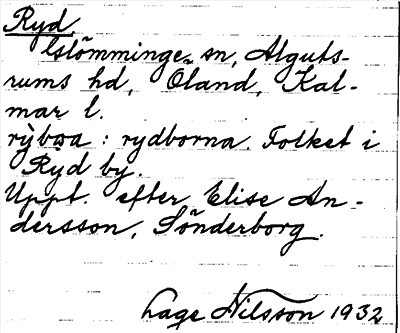 Ryd
Glömminge sn, Alguts-
rums hd, Öland, Kal-
mar l.
: rydborna. Folket i
Ryd by.
Uppt. efter Elise An-
dersson, Sönderborg.
Lage Nilsson 1932